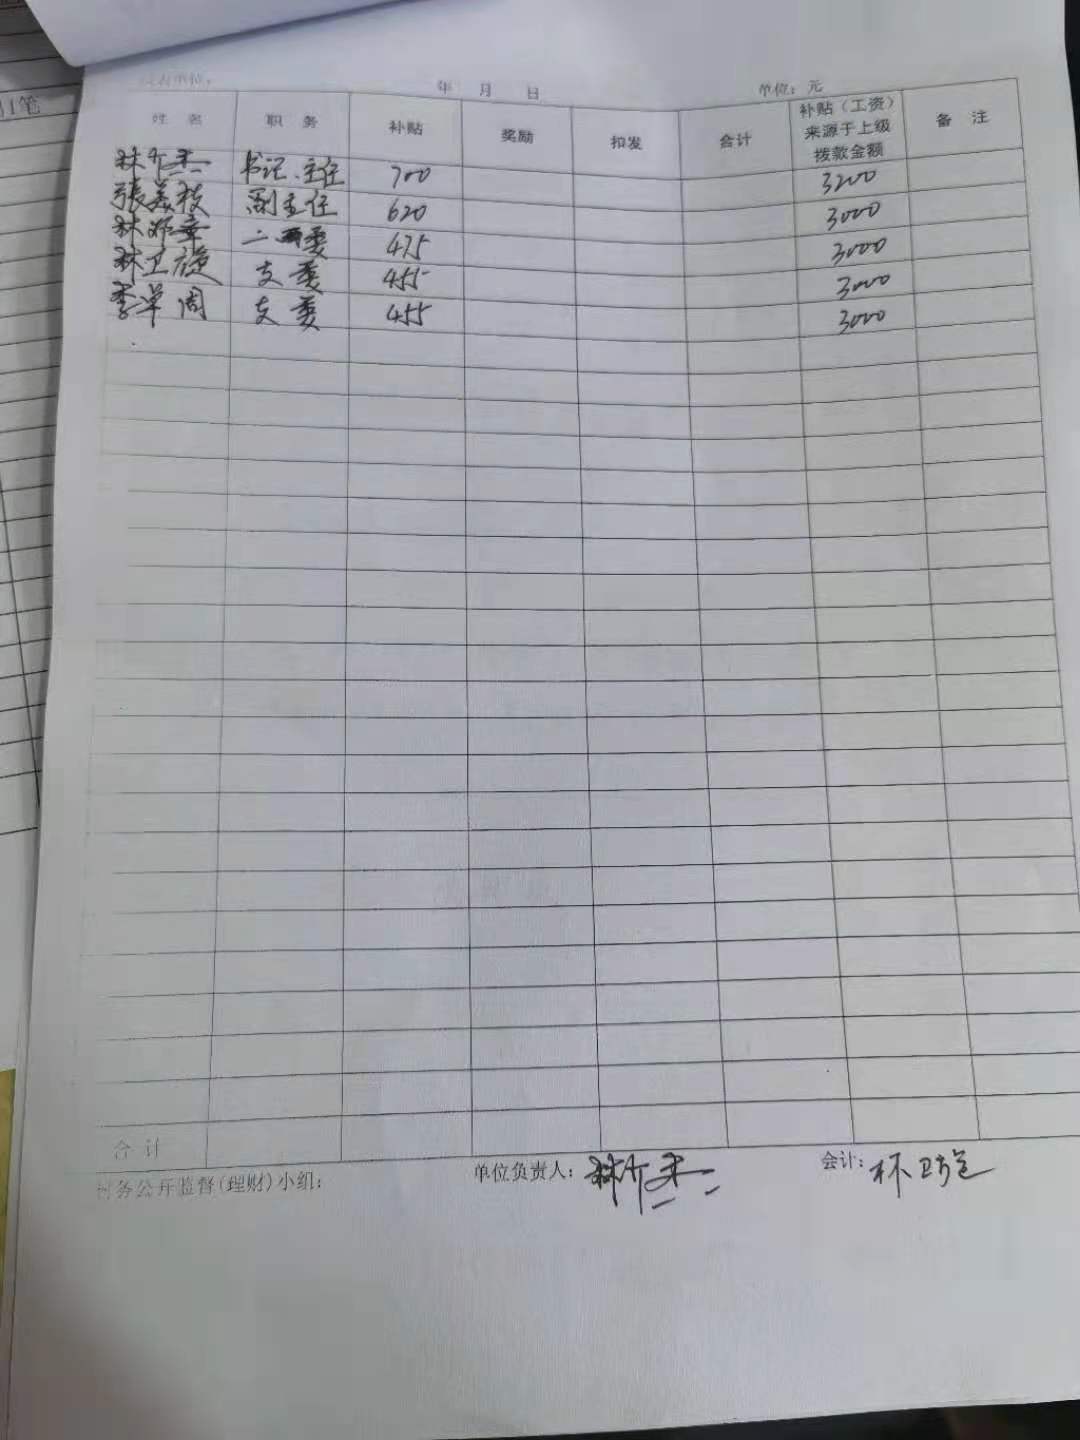 11笔
年 月 日 单位：元
姓 名 职 务 补贴 奖励 扣发 合计 补贴（工资）来源于上级拨款金额 备 注
书记、主任 700 3200
張美枝 副主任 620 3000
林 委 475 3000
林卫 支委 455 3000
李 周 支委 455 3000
合 计
村务公开监督(理财)小组： 单位负责人： 会计：林卫